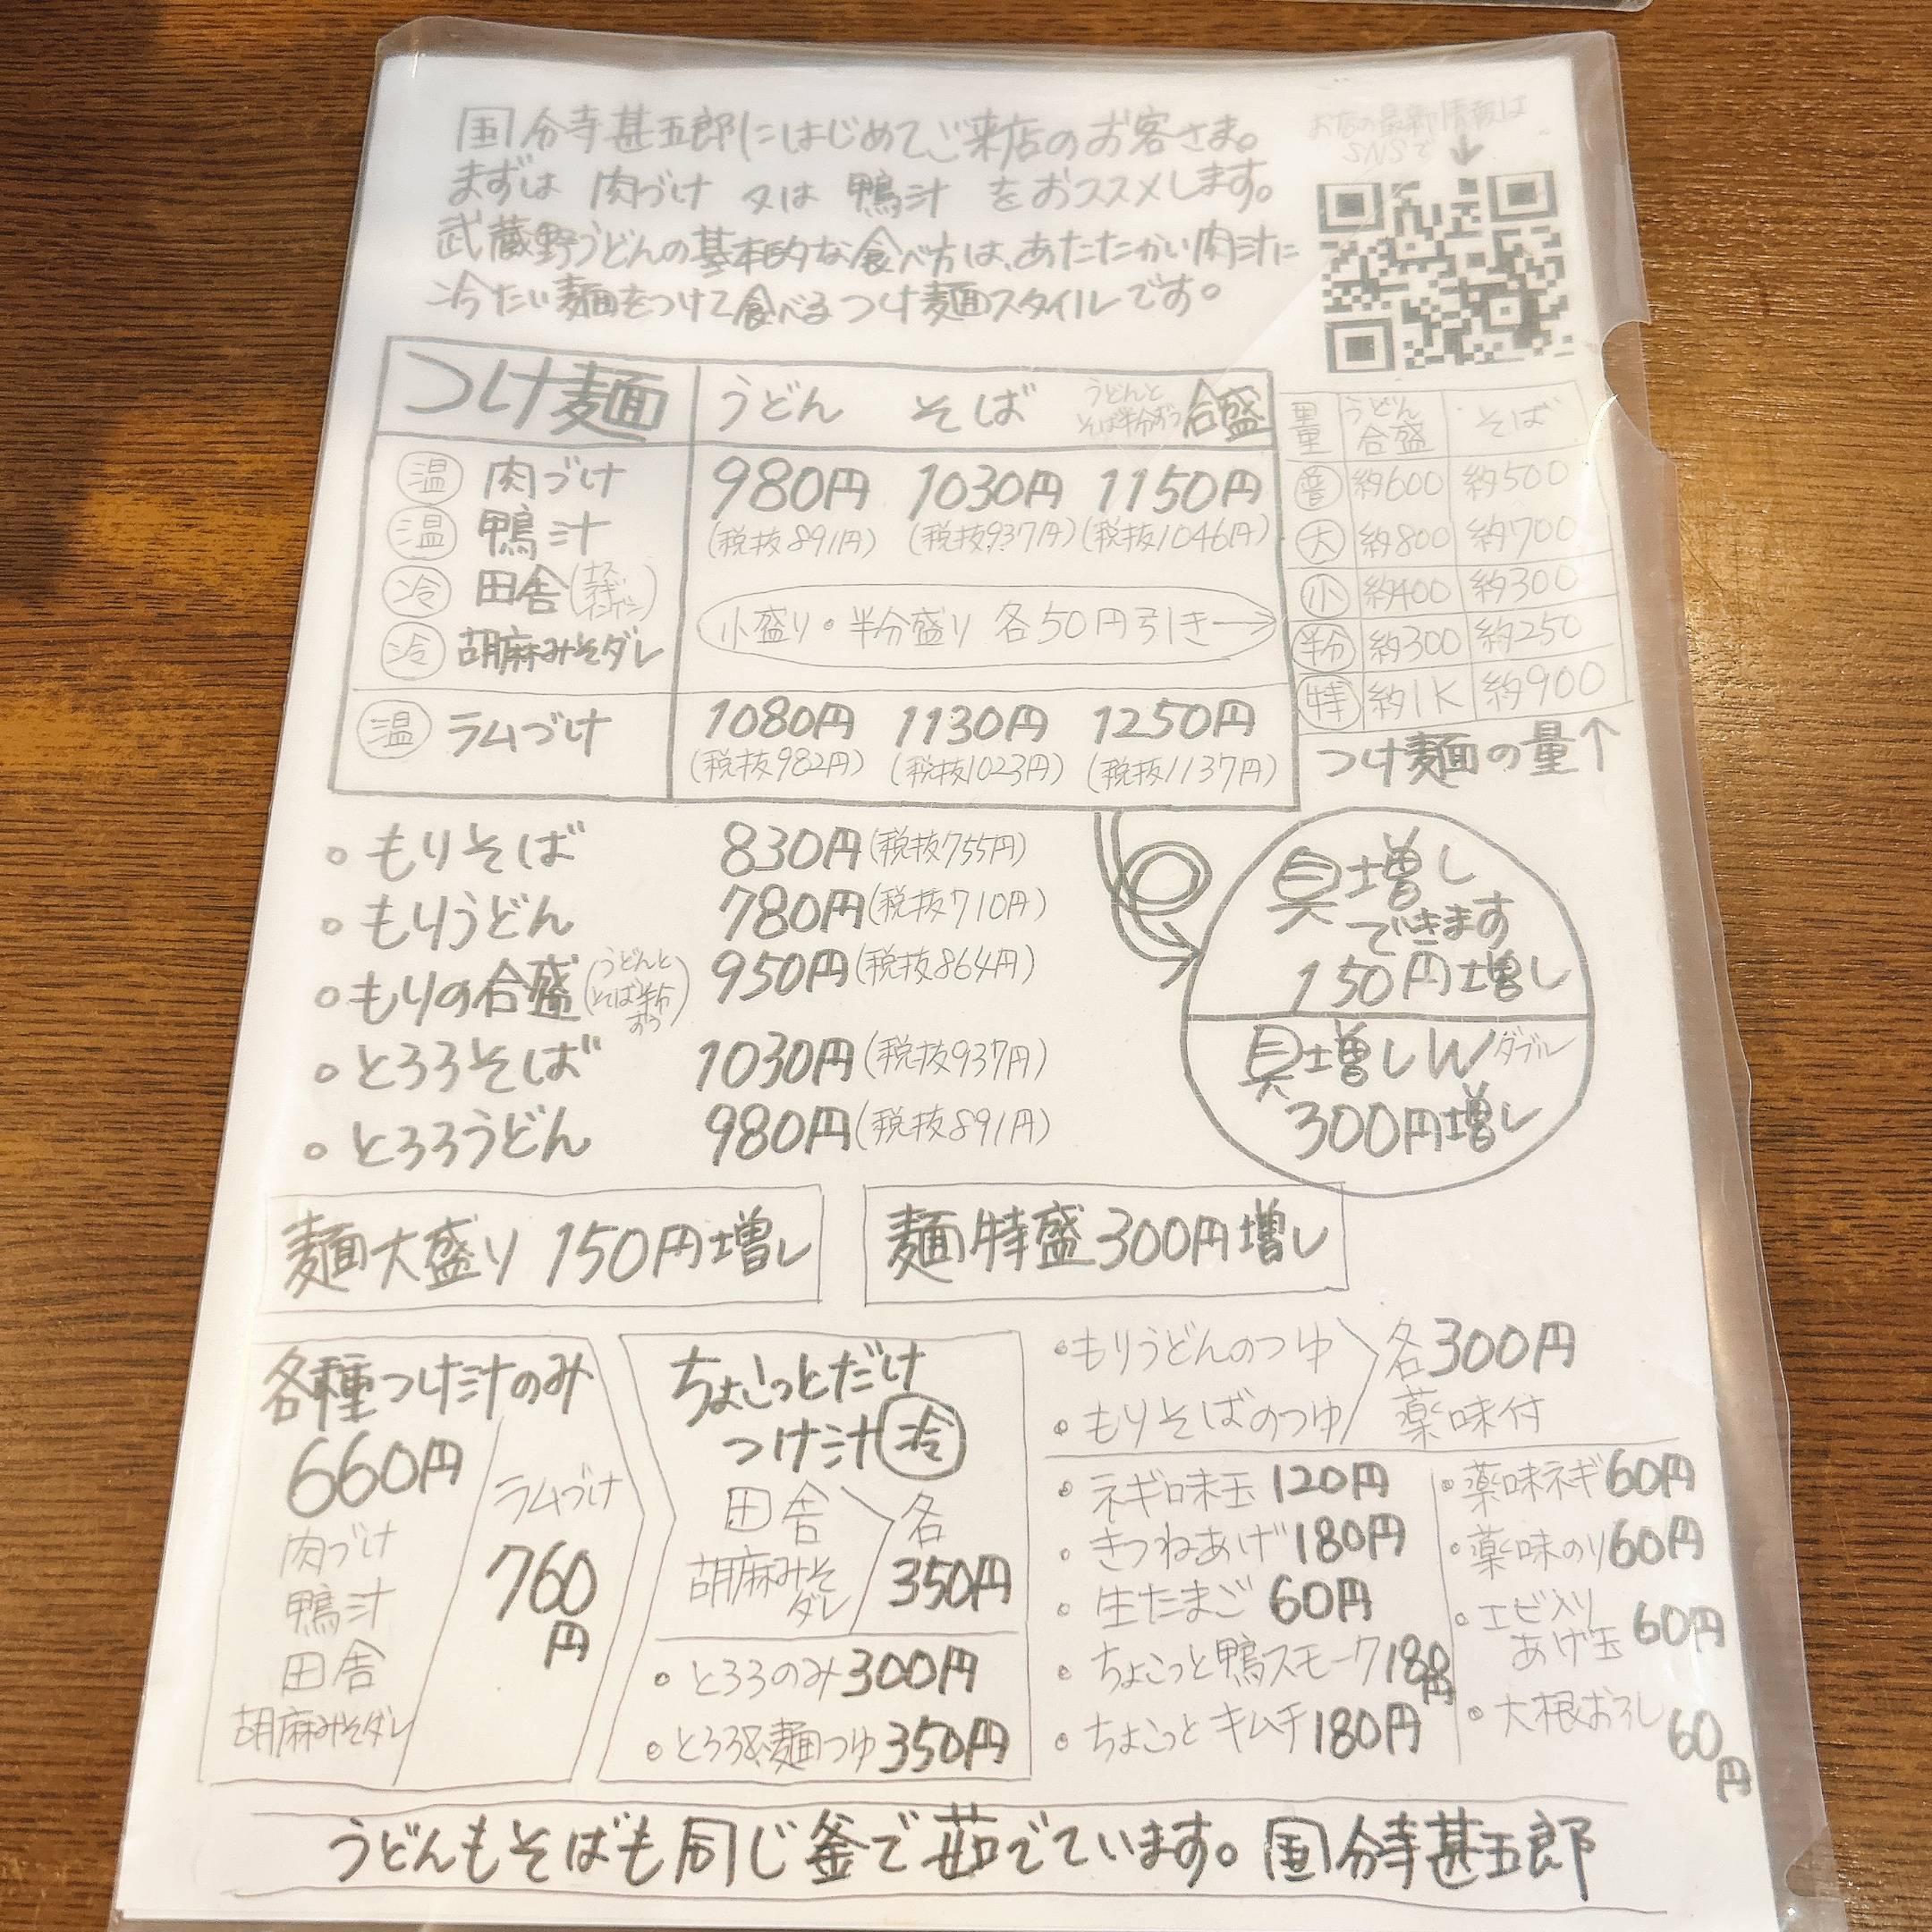 国分寺甚五郎にはじめてご来店のお客さま。
まずは 肉づけ 又は 鴨汁 をおススメします。
武蔵野うどんの基本的な食べ方は、あたたかい肉汁に
冷たい麺をつけて食べるつけ麺スタイルです。
お店の最新情報は
SNSで↓
つけ麺 うどん そば うどんとそば半分ずつ 合盛
温 肉づけ 980円 1030円 1150円
(税抜891円) (税抜937円) (税抜1046円)
温 鴨汁
冷 田舎(ナス ネギ)
小盛り・半分盛り 各50円引き→
冷 胡麻みそダレ
温 ラムづけ 1080円 1130円 1250円
(税抜982円) (税抜1023円) (税抜1137円)
量 うどん合盛 そば
普 約600 約500
大 約800 約700
小 約400 約300
半分 約300 約250
特 約1K 約900
つけ麺の量↑
・もりそば 830円(税抜755円)
・もりうどん 780円(税抜710円)
・もりの合盛(うどんとそば半分ずつ) 950円(税抜864円)
・とろろそば 1030円(税抜937円)
・とろろうどん 980円(税抜891円)
具増し
できます
150円増し
具増しWダブル
300円増し
麺大盛り 150円増し
麺特盛300円増し
各種つけ汁のみ
660円
肉づけ
鴨汁
田舎
胡麻みそダレ
ラムづけ
760
円
ちょこっとだけ
つけ汁 冷
田舎
胡麻みそ
ダレ
各
350円
・とろろのみ300円
・とろろ&麺つゆ350円
・もりうどんのつゆ
・もりそばのつゆ
各300円
薬味付
・ネギ味玉 120円
・きつねあげ180円
・生たまご 60円
・ちょこっと鴨スモーク180円
・ちょこっとキムチ180円
・薬味ネギ60円
・薬味のり60円
・エビ入り
あげ玉 60円
・大根おろし
60円
うどんもそばも同じ釜で茹でています。国分寺甚五郎